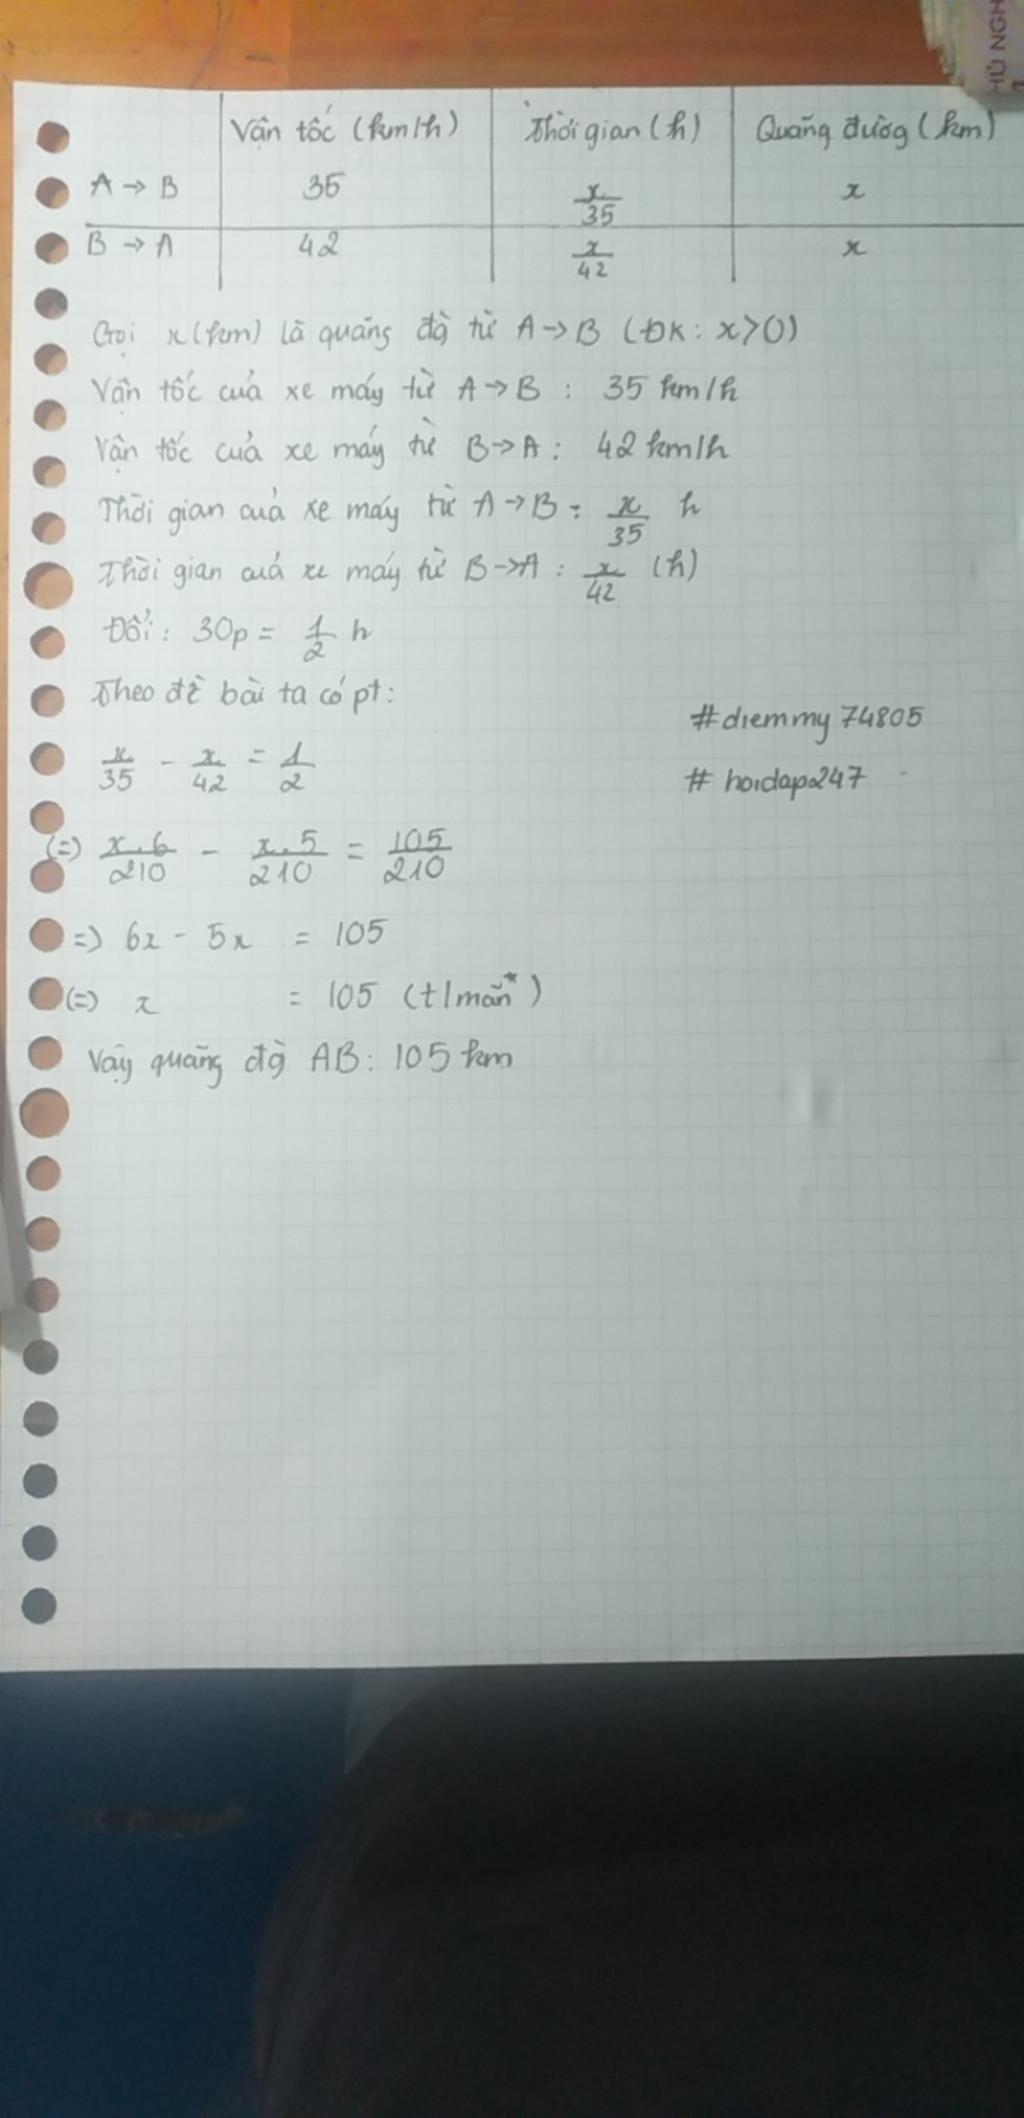 HỦ NGH
Vận tốc (km/h) Thời gian (h) Quãng đường (km)
A → B 35 x/35 x
B → A 42 x/42 x
Gọi x (km) là quãng đg từ A → B (ĐK: x > 0)
Vận tốc của xe máy từ A → B : 35 km/h
Vận tốc của xe máy từ B → A : 42 km/h
Thời gian của xe máy từ A → B = x/35 h
Thời gian của xe máy từ B → A : x/42 (h)
Đổi : 30p = 1/2 h
Theo đề bài ta có pt:
x/35 - x/42 = 1/2
#diemmy74805
# hoidap247
(=) x.6/210 - x.5/210 = 105/210
=) 6x - 5x = 105
(=) x = 105 (t/mãn*)
Vậy quãng đg AB: 105 km